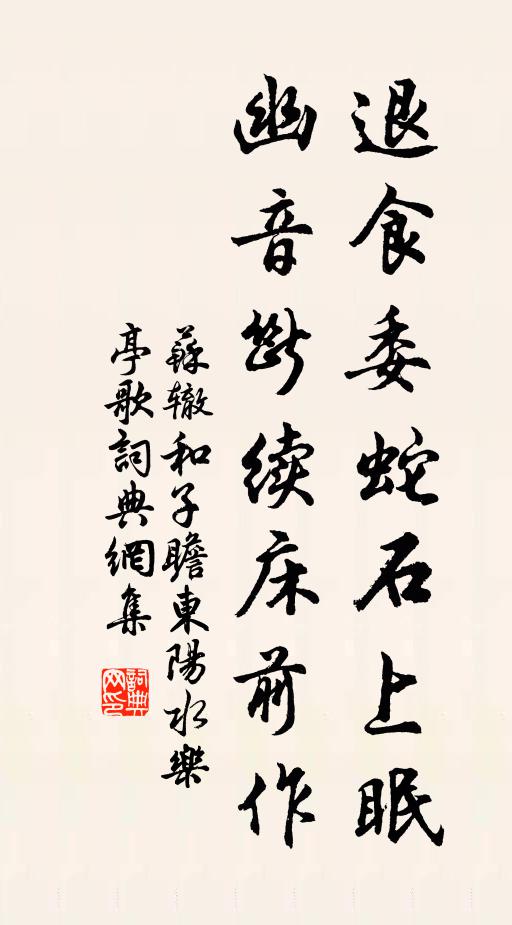 退食委蛇石上眠
幽音斷续床前作
蘇辙和子瞻東陽水樂
亭歌詞典網集
詞典
网印